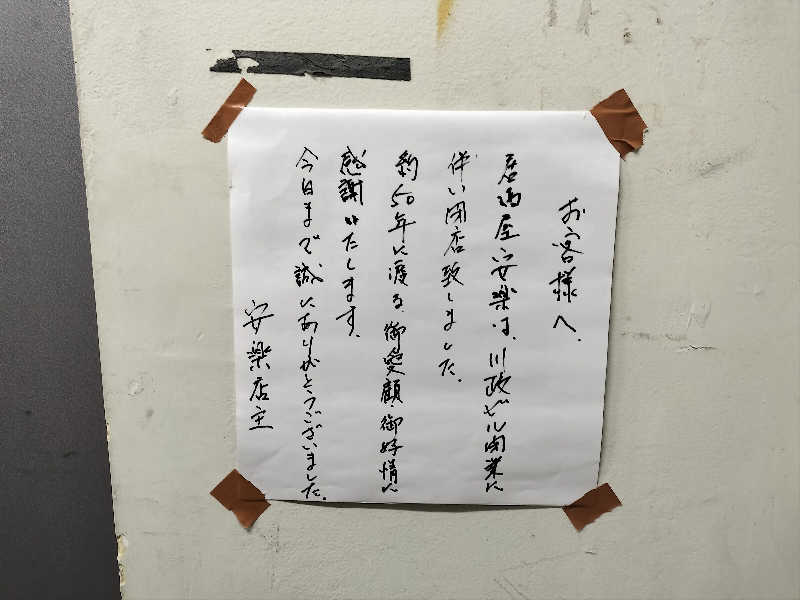 お客様へ.
居酒屋安楽は、川政ビル閉業に
伴い閉店致しました.
約50年に渡る、御愛顧・御好情に
感謝いたします.
今日まで誠にありがとうございました.
安楽店主